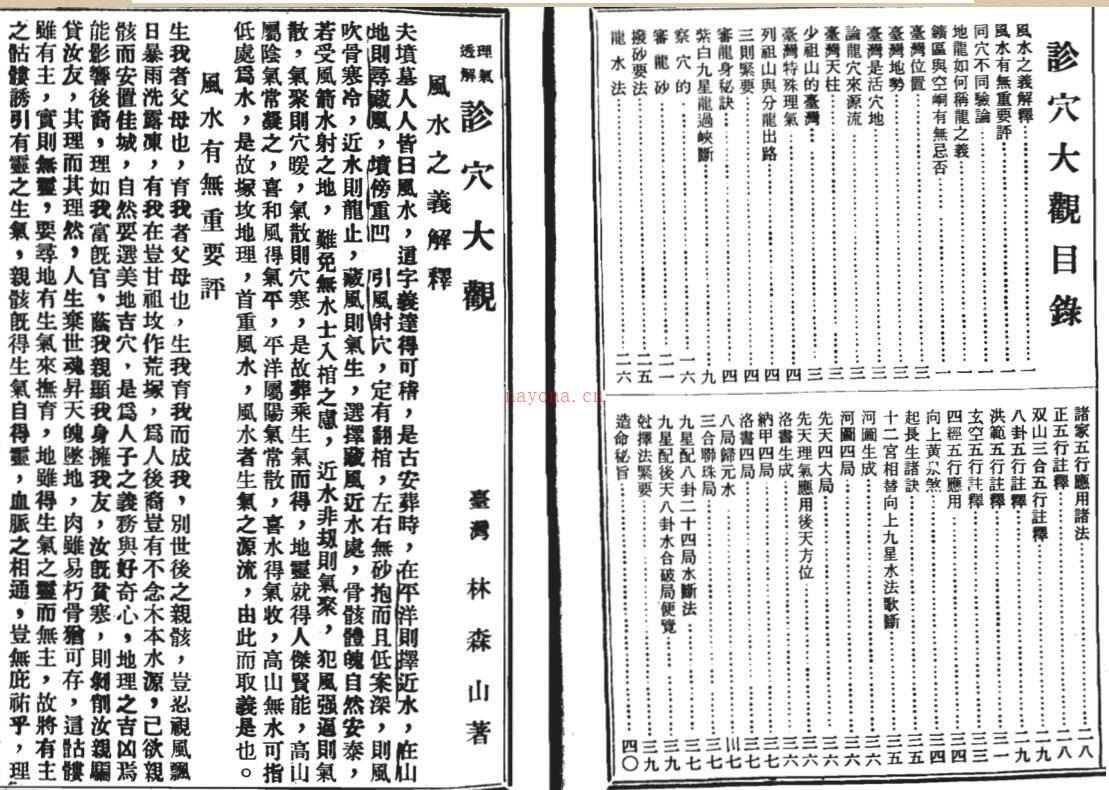 診穴大觀目錄
風水之義解釋………一
風水有無重要評………一
同穴不同驗論………一
地龍如何稱龍之義………一
區與空峒有無忌否………一
臺灣位置………三
臺灣地勢………三
臺灣是活穴地………三
論龍穴來源流………三
臺灣天柱………三
少祖山的臺灣………三
臺灣特殊理氣………四
列祖山與分龍出路………四
三則緊要………四
審龍身秘訣………四
紫白九星龍過峽斷………九
察穴的………一六
審龍砂………二一
撥砂要法………二五
龍水法………二六
諸家五行應用諸法………二八
正五行註釋………二八
双山三合五行註釋………二九
八卦五行註釋………二九
洪範五行註釋………三一
玄空五行註釋………三三
四經五行應用………三四
向上黃泉煞………三四
起長生諸訣………三五
十二宮相替向上九星水法歌斷………三五
河圖生成………三六
河圖四局………三六
先天四大局………三六
先天理氣應用後天方位………三六
洛書生成………三六
納甲四局………三七
洛書四局………三七
八局歸元水………三七
三合聯珠局………三七
九星配八卦二十四局水斷法………三七
九星配後天八卦水合破局便覽………三七
尅擇法緊要………三九
造命秘旨………四〇
理氣透解 診穴大觀
臺灣 林森山著
風水之義解釋
夫墳墓人人皆曰風水，這字義達得可稽，是古安葬時，在平洋則擇近水，在山
地則尋藏風，墳傍重凹 引風射穴，定有翻棺，左右無砂抱而且低案深，則風
吹骨寒冷，近水則龍止，藏風則氣生，選擇藏風近水處，骨骸體魄自然安泰，
若受風箭水射之地，難免無水士入棺之慮，近水非刼則氣聚，犯風强逼則氣
散，氣聚則穴暖，氣散則穴寒，是故葬乘生氣而得，地靈就得人傑賢能，高山
屬陰氣常凝之，喜和風得氣平，平洋屬陽氣常散，喜水得氣收，高山無水可指
低處爲水，是故塚坟地理，首重風水，風水者生氣之源流，由此而取義是也。
風水有無重要評
生我者父母也，育我者父母也，生我育我而成我，別世後之親骸，豈忍視風飄
日暴雨洗露凍，有我在豈甘祖坟作荒塚，爲人後裔豈有不念木本水源，己欲親
骸而安置佳城，自然要選美地吉穴，是爲人子之義務與好奇心，地理之吉凶焉
能影響後裔，理如我富旣官，蔭我親顯我身擁我友，汝旣貧寒，則剝削汝親騙
貸汝友，其理而其理然，人生棄世魂昇天魄墜地，肉雖易朽骨猶可存，這骷髏
雖有主，實則無靈，要尋地有生氣來撫育，地雖得生氣之靈而無主，故將有主
之骷髏誘引有靈之生氣，親骸旣得生氣自得靈，血脈之相通，豈無庇祐乎，理
nayona.cn